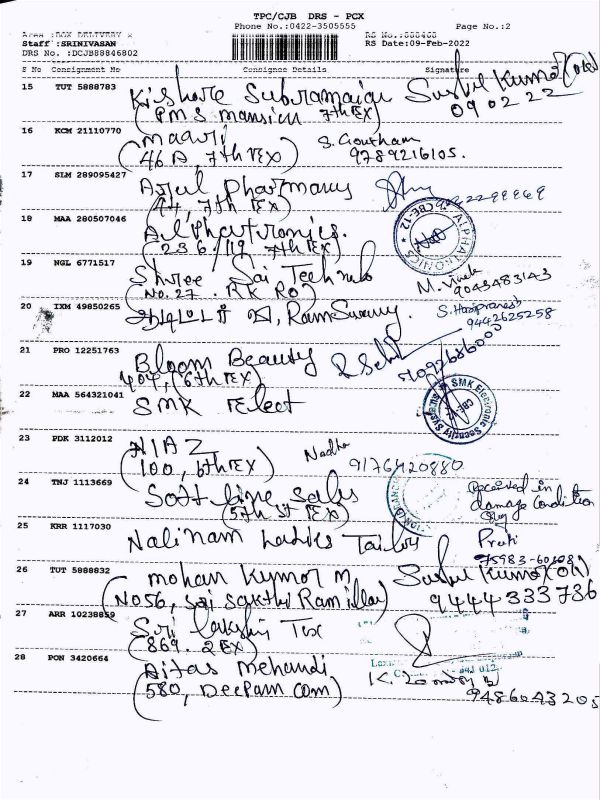 TPC/CJB DRS - PCX
Phone No.:0422-3505555 Page No.:2
Staff :SRINIVASAN RS Date:09-Feb-2022
DRS No. :DCJB88846802
S No Consignment No Consignee Details Signature
15 TUT 5888783 Kishore Subramaian Sushil Kumar
(PMS mansion 7th EX) 09 02 22
16 KCM 21110770 S. Goutham
(46 A, 7th EX) 9789216105.
17 SLM 289095427 Pharmacy
(44, 7th EX)
18 MAA 280507046 Alphatronics.
(236/119 7th EX)
ALPHATRONICS CBE-12
19 NGL 6771517 Shree Sai Techno M. Vivek
(No.27. RK RD) 9043483143
20 IXM 49850265 Ram Swamy. S. Haripranesh
9442625258
21 PRO 12251763 Bloom Beauty
404, (6th EX) 7092686000
22 MAA 564321041 SMK Elect
SMK Electronic Security Systems
23 PDK 3112012 NIAZ Nadha
(100, 6th EX) 9176420880
24 TNJ 1113669 Soft line sales Received in
(5th St EX) damage Condition
25 KRR 1117030 Nalinam Ladies Tailor
75983-60108
26 TUT 5888832 mohan Kumar M Sushil Kumar
(No 56, Sai Sakthi Ram illa) 9444333786
27 ARR 10238859 Sri Lakshmi Tex
(869. 2 EX)
28 PON 3420664 Mehandi
(580, Deepam Com) 9486043205